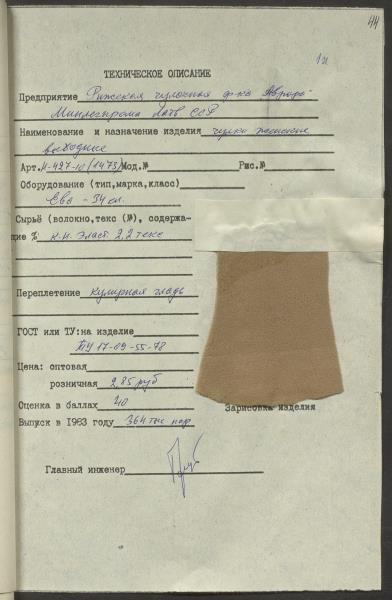 44
1и
ТЕХНИЧЕСКОЕ ОПИСАНИЕ
Предприятие Рижская чулочная ф-ка "Аврора"
Минлегпрома Латв ССР
Наименование и назначение изделия чулки женские
выходные
Арт. Н-427-10 (1473) Мод.№ Рис.№
Оборудование (тип,марка,класс)
Ева - 34 кл.
Сырьё (волокно,текс (№), содержа-
щие % к.н. эласт 2,2 текс
Переплетение кулирная гладь
ГОСТ или ТУ:на изделие
ТУ 17-09-55-78
Цена: оптовая
розничная 2,85 руб
Оценка в баллах 40
Зарисовка изделия
Выпуск в 1983 году 364 тыс пар
Главный инженер